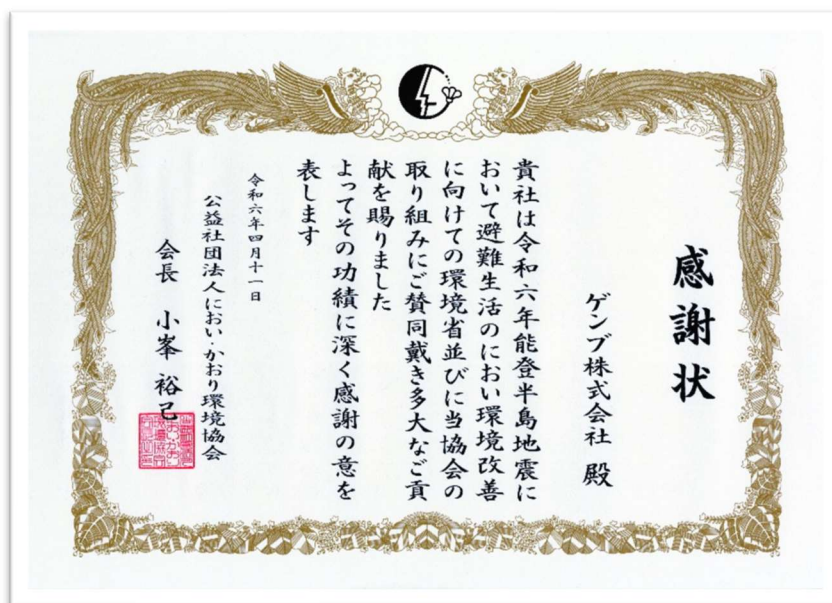 感謝状
ゲンブ株式会社 殿
貴社は令和六年能登半島地震に
おいて避難生活のにおい環境改善
に向けての環境省並びに当協会の
取り組みにご賛同戴き多大なご貢
献を賜りました
よってその功績に深く感謝の意を
表します
令和六年四月十一日
公益社団法人におい・かおり環境協会
会長 小峯 裕己